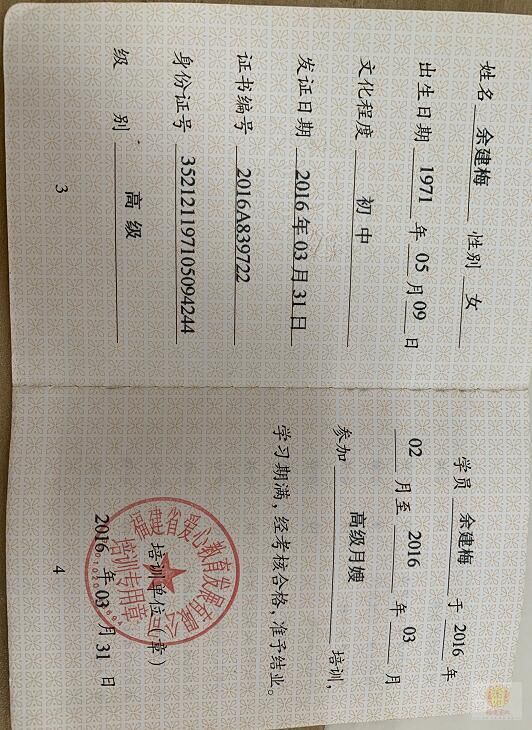 姓名 余建梅 性别 女
出生日期 1971 年 05 月 09 日
文化程度 初中
发证日期 2016 年 03 月 31 日
证书编号 2016A839722
身份证号 352121197105094244
级 别 高级
3
学员 余建梅 于 2016 年
02 月至 2016 年 03 月
参加 高级月嫂 培训，
学习期满，经考核合格，准予结业。
培训单位（章）
2016 年 03 月 31 日
福建省爱心教育发展基金会
培训专用章
4